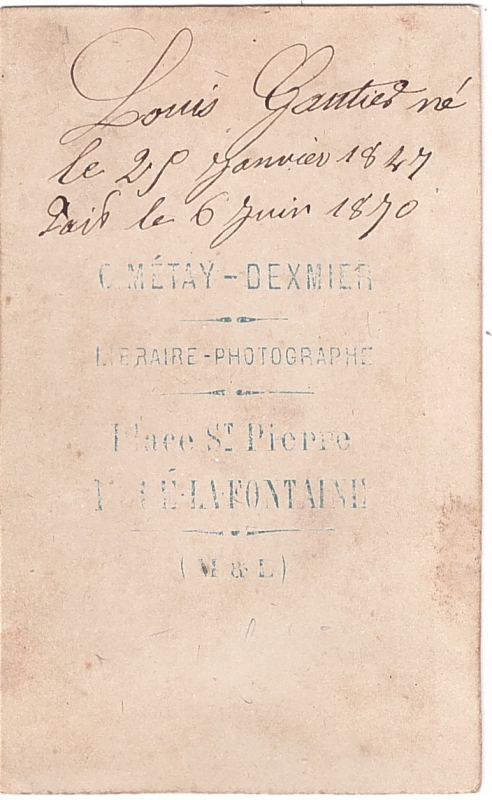 Louis Gautier né
le 25 Janvier 1847
Fait le 6 Juin 1870
C. MÉTAY - DEXMIER
LIBRAIRE - PHOTOGRAPHE
Place St Pierre
DOUÉ-LA-FONTAINE
(M & L)